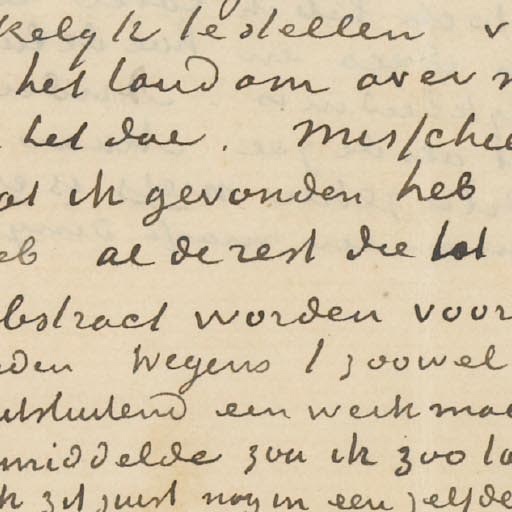 kelyk te stellen v
het land om over
het doe. Misschie
at ik gevonden heb
eb al de rest die tot
bstract worden voor
den wegens 't zoowel
uitsluitend een werk ma
middelde zou ik zoo la
k zit juist nog in een zelfde